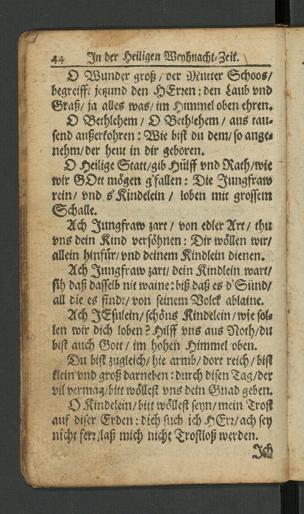 44 In der Heiligen Weyhnacht-Zeit.
O Wunder groß/ der Mutter Schoos/
begreifft jetzund den HErren: den Laub vnd
Graß/ ja alles was/ im Himmel oben ehren.
O Bethlehem/ O Bethlehem/ aus tau-
send außerkohren: Wie bist du dem/ so ange-
nehm/ der heut in dir geboren.
O Heilige Statt/ gib Hülff vnd Rath/ wie
wir GOtt mögen g'fallen: Die Jungfraw
rein/ vnd s' Kindelein/ loben mit grossem
Schalle.
Ach Jungfraw zart/ von edler Art/ thu
vns dein Kind versöhnen: Dir wöllen wir/
allein hinfür/ vnd deinem Kindlein dienen.
Ach Jungfraw zart/ dein Kindlein wart/
sih daß dasselb nit waine: biß daß es d' Sünd/
all die es findt/ von seinem Volck ablaine.
Ach JEsulein/ schöns Kindelein/ wie sol-
len wir dich loben? Hilff vns aus Noth/ du
bist auch Gott/ im hohen Himmel oben.
Du bist zugleich/ hie armb/ dort reich/ bist
klein vnd groß darneben: durch disen Tag/ der
vil vermag/ bitt wöllest vns dein Gnad geben.
O Kindelein/ bitt wöllest seyn/ mein Trost
auf diser Erden: dich such ich HErr/ ach sey
nicht ferr/ laß mich nicht Trostloß werden.
Ich